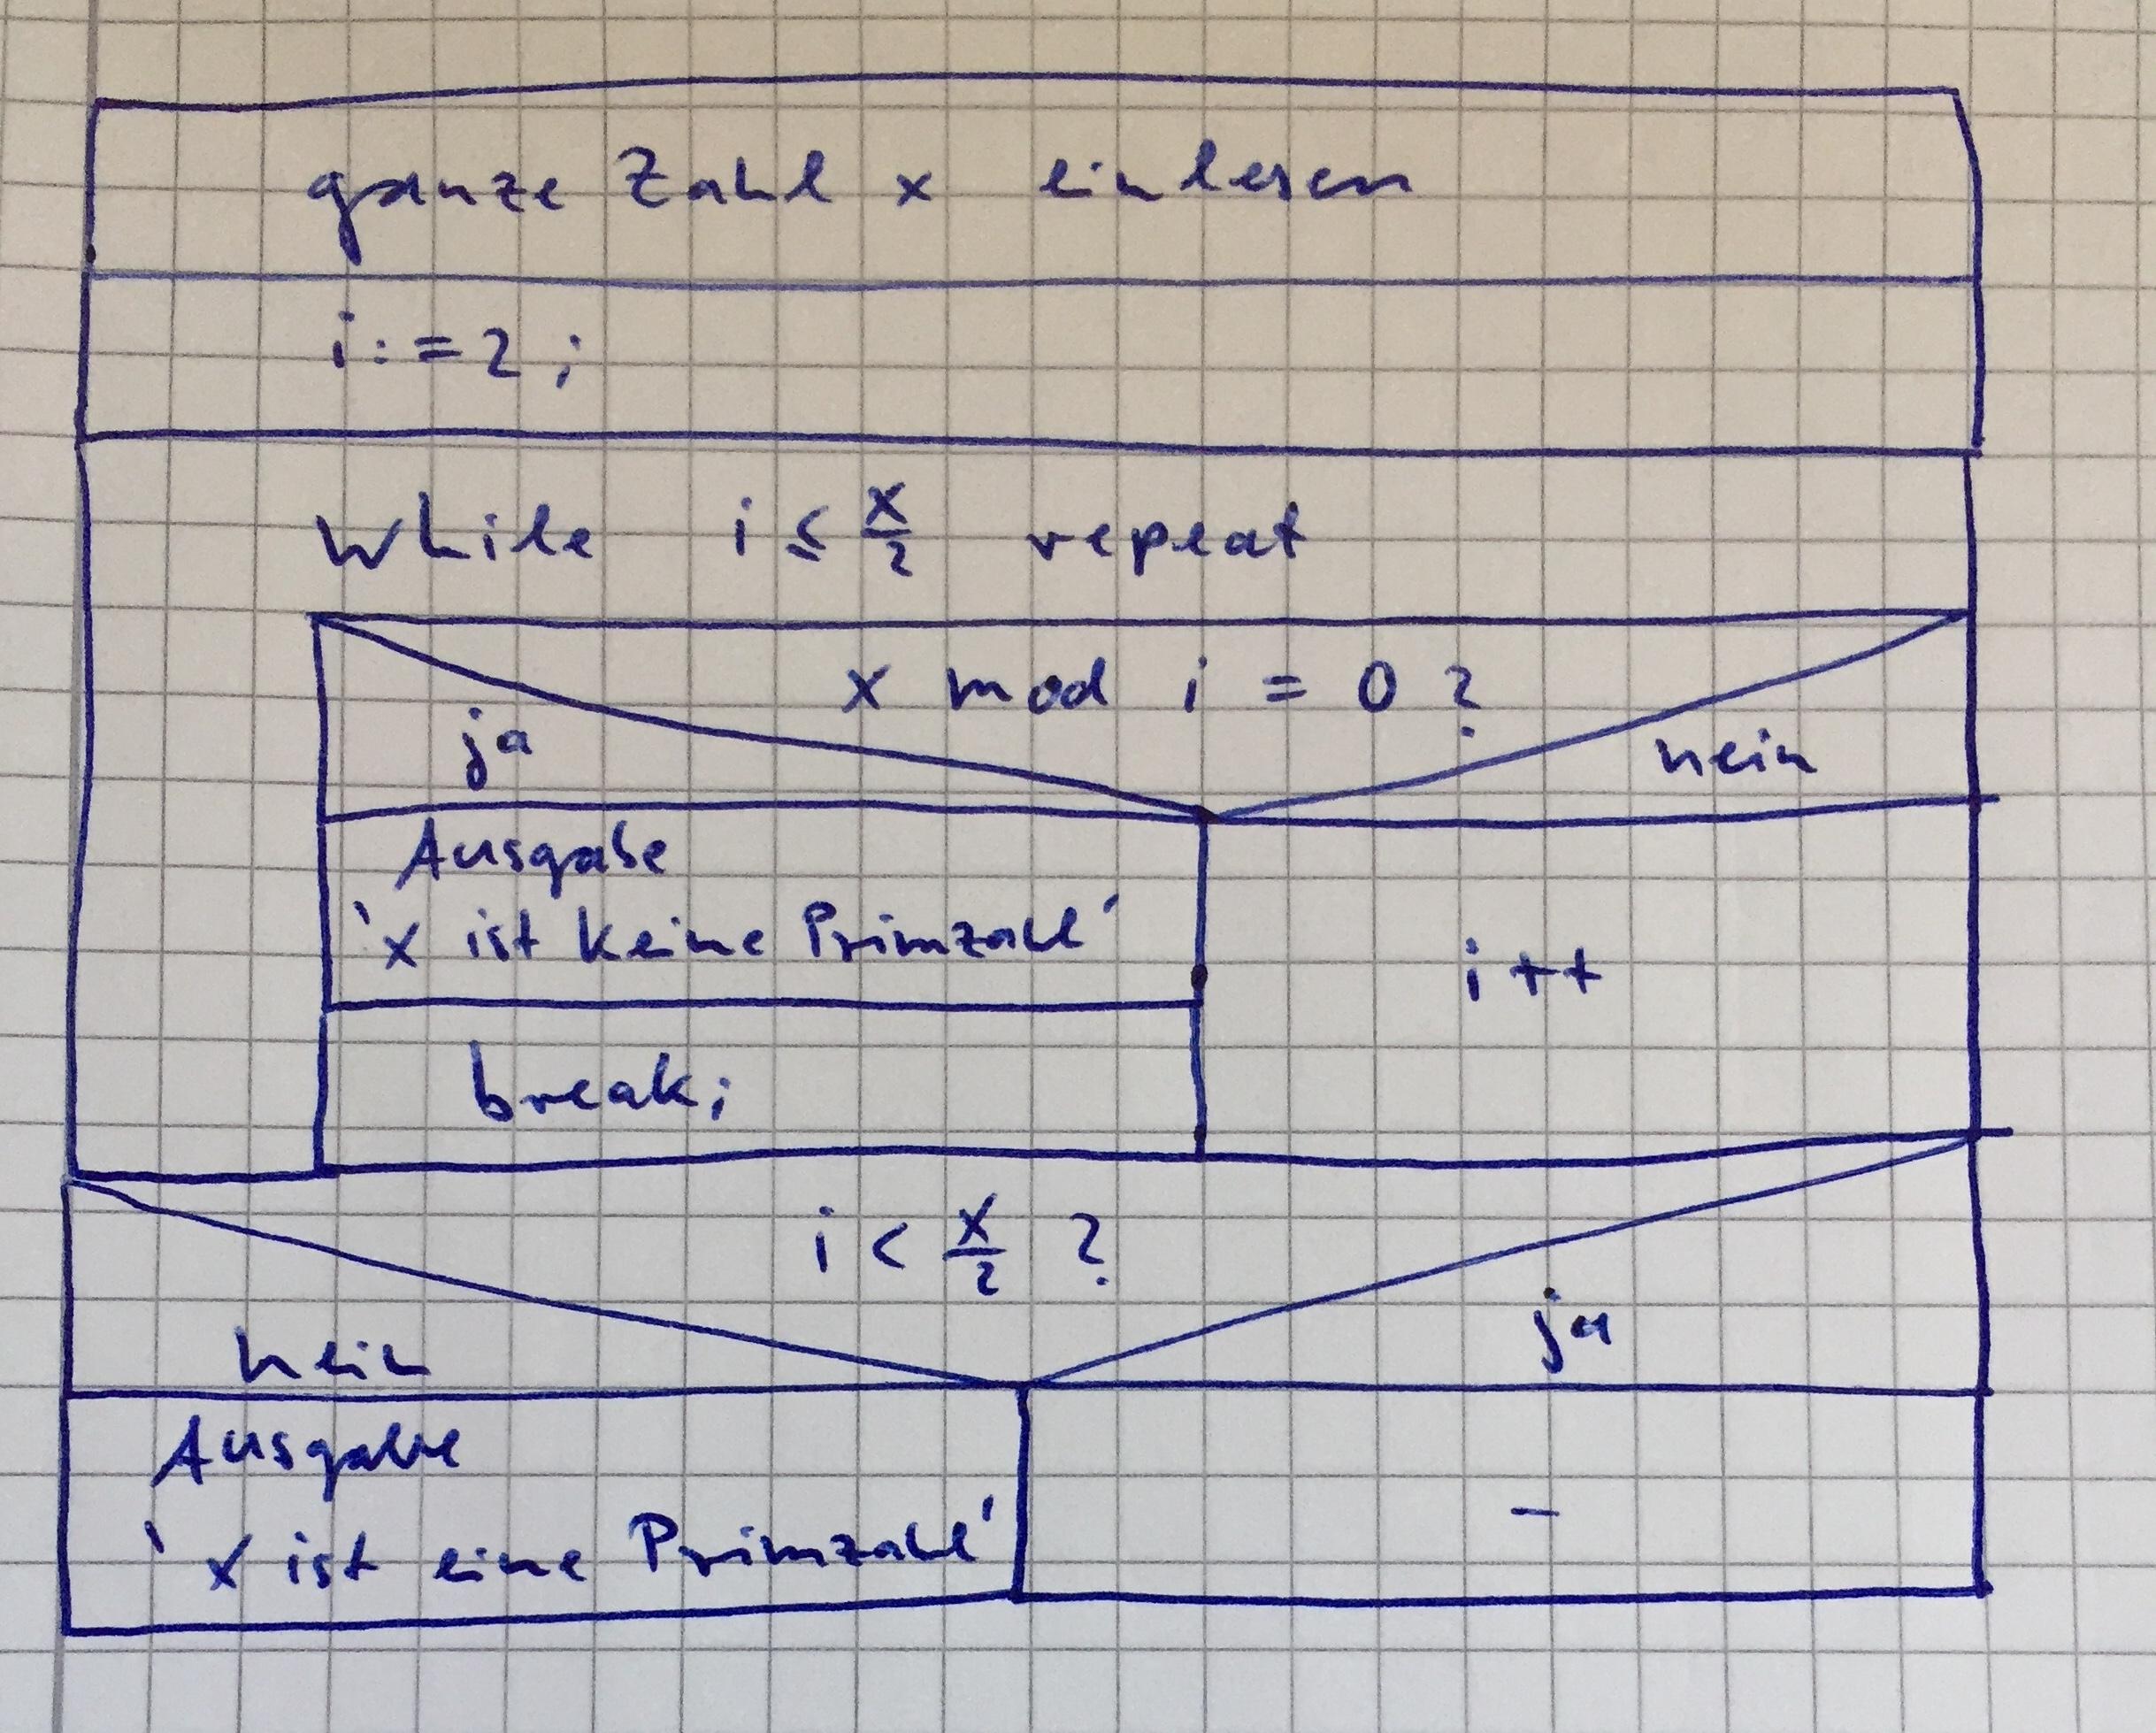 ganze Zahl x einlesen
i:=2;
while i ≤ x/2 repeat
x mod i = 0?
ja
nein
Ausgabe
'x ist keine Primzahl'
i++
break;
i < x/2 ?
nein
ja
Ausgabe
'x ist eine Primzahl'
-